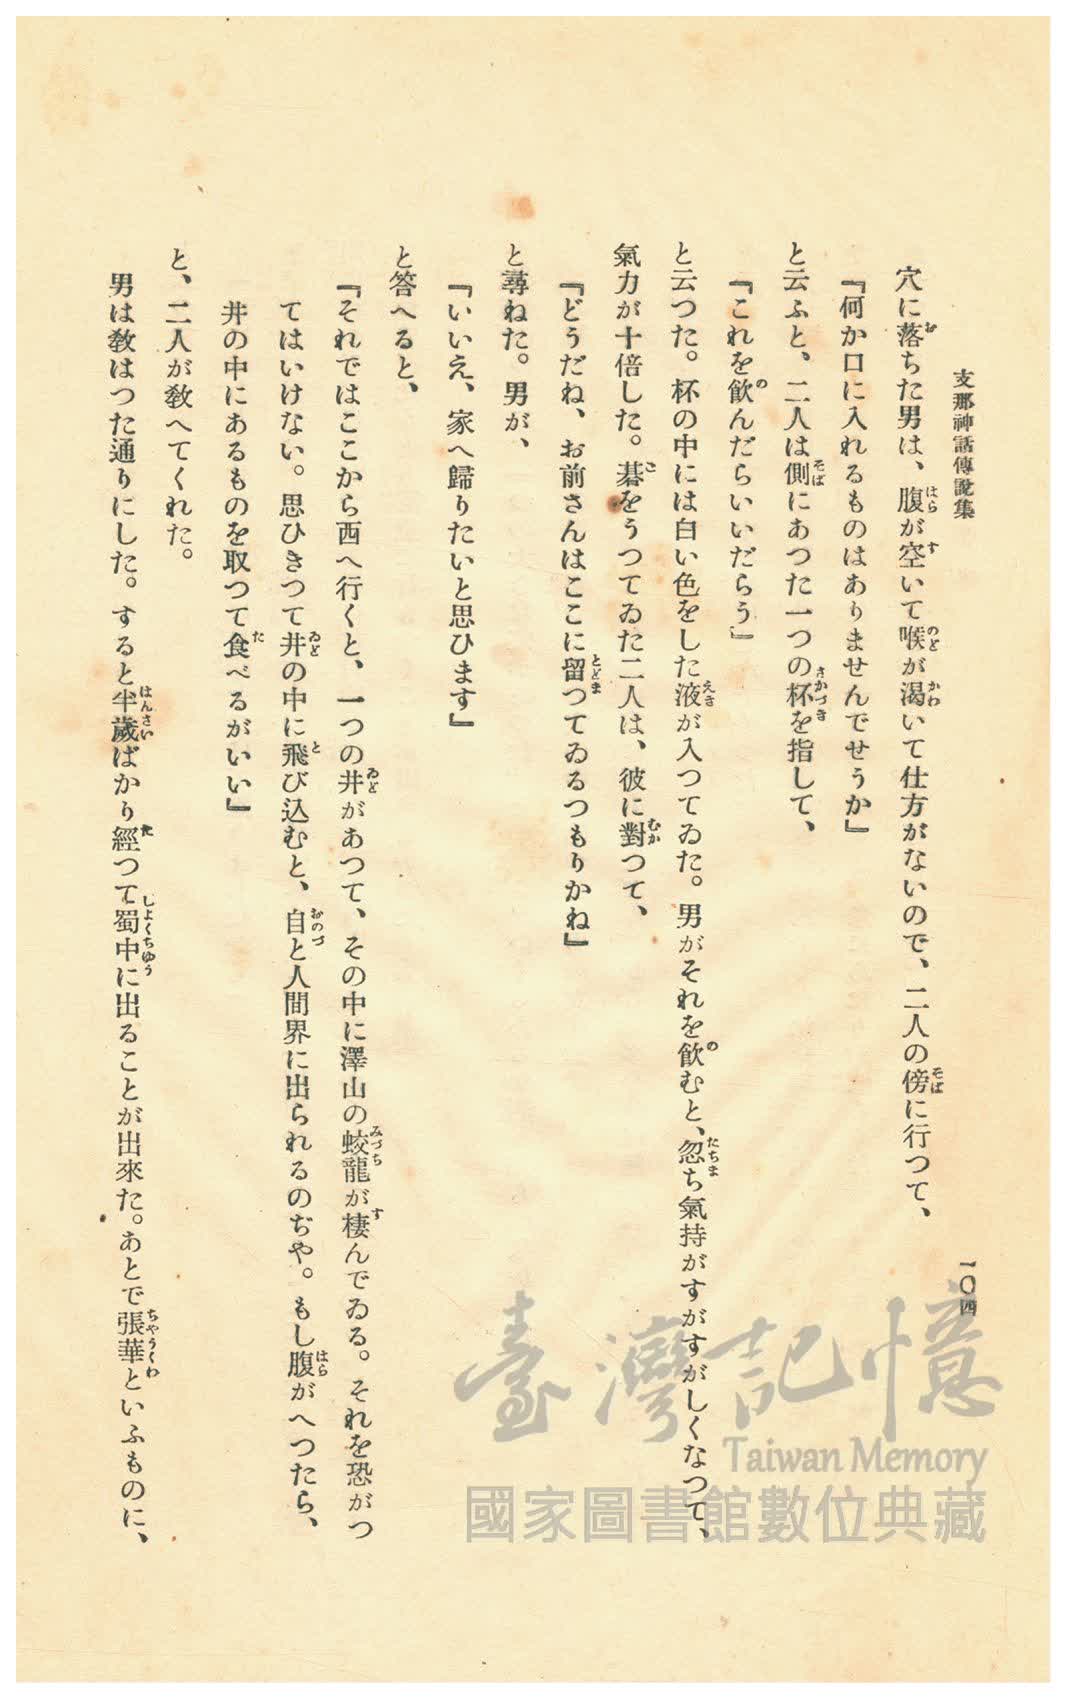 支那神話傳說集
一〇四
穴に落ちた男は、腹が空いて喉が渴いて仕方がないので、二人の傍に行つて、
『何か口に入れるものはありませんでせうか』
と云ふと、二人は側にあつた一つの杯を指して、
『これを飮んだらいいだらう』
と云つた。杯の中には白い色をした液が入つてゐた。男がそれを飮むと、忽ち氣持がすがすがしくなつて、
氣力が十倍した。碁をうつてゐた二人は、彼に對つて、
『どうだね、お前さんはここに留つてゐるつもりかね』
と尋ねた。男が、
『いいえ、家へ歸りたいと思ひます』
と答へると、
『それではここから西へ行くと、一つの井があつて、その中に澤山の蛟龍が棲んでゐる。それを恐がつ
てはいけない。思ひきつて井の中に飛び込むと、自と人間界に出られるのぢや。もし腹がへつたら、
井の中にあるものを取つて食べるがいい』
と、二人が敎へてくれた。
男は敎はつた通りにした。すると半歲ばかり經つて蜀中に出ることが出來た。あとで張華といふものに、
臺灣記憶
Taiwan Memory
國家圖書館數位典藏